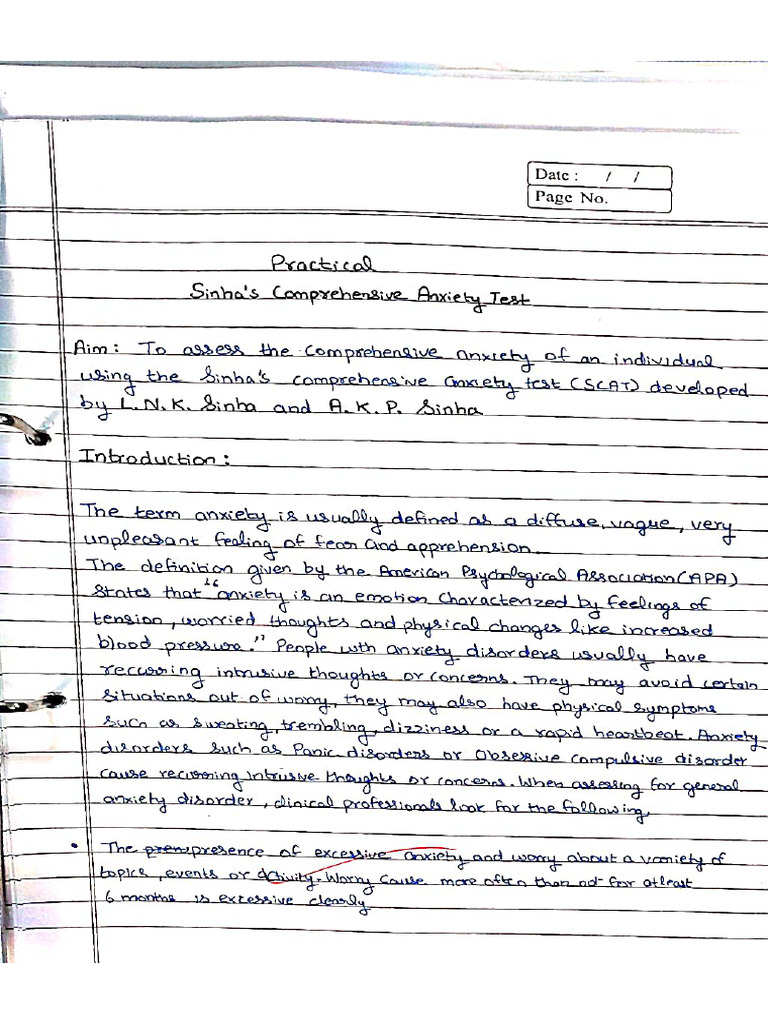 Date : / /
Page No.
Practical
Sinha's Comprehensive Anxiety Test
Aim: To assess the comprehensive anxiety of an individual
using the Sinha's comprehensive anxiety test (SCAT) developed
by L.N.K. Sinha and A.K.P. Sinha
Introduction:
The term anxiety is usually defined as a diffuse, vague, very
unpleasant feeling of fear and apprehension
The definition given by the American Psychological Association (APA)
states that "anxiety is an emotion characterized by feelings of
tension, worried thoughts and physical changes like increased
blood pressure." People with anxiety disorders usually have
recurring intrusive thoughts or concerns. They may avoid certain
situations out of worry, they may also have physical symptoms
such as sweating, trembling, dizziness or a rapid heartbeat. Anxiety
disorders such as Panic disorders or Obsessive compulsive disorder
cause recurring intrusive thoughts or concerns. When assessing for general
anxiety disorder, clinical professionals look for the following
• The presence of excessive anxiety and worry about a variety of
topics, events or activity. Worry cause more often than not for atleast
6 months is excessive clearly